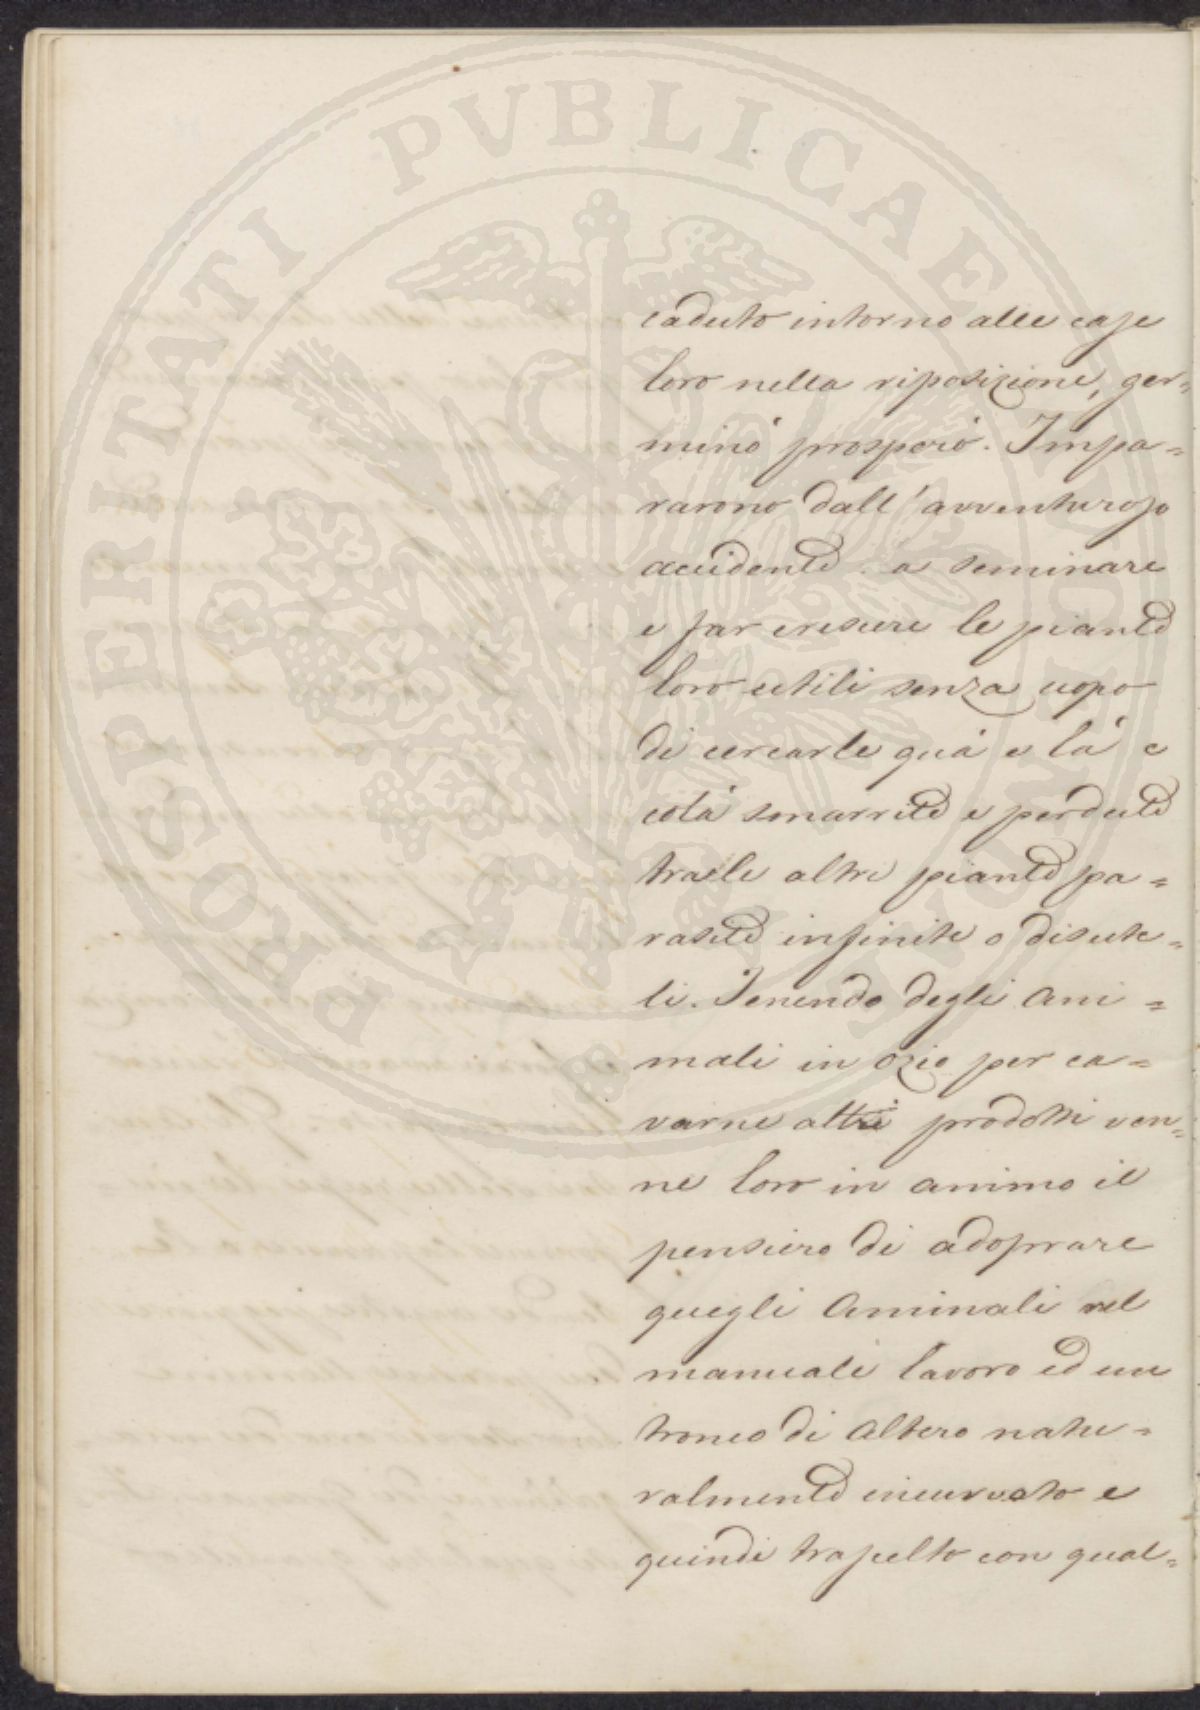 PROSPERITATI PVBLICAE AVGENDAE
caduto intorno alle case
loro nella riposizione, ger=
minó prosperò. Impa=
rarono dall'avventuroso
accidente a seminare
e far crescere le piante
loro utili senza uopo
di cercarle quá e lá e
colá smarrite e perdute
tra le altre piante pa=
rasite infinite o disute=
li. Tenendo degli ani=
mali in ozio per ca=
varne altri prodotti ven=
ne loro in animo il
pensiero di adoprare
quegli Aminali nel
manuale lavoro ed un
tronco di albero natu=
ralmente incurvato e
quindi trascelto con qual=